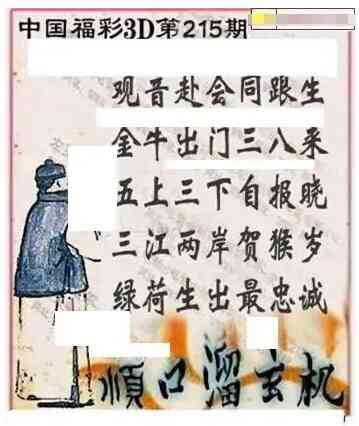 中国福彩3D第215期
观音赴会同跟生
金牛出门三八来
五上三下自报晓
三江两岸贺猴岁
绿荷生出最忠诚
顺口溜玄机